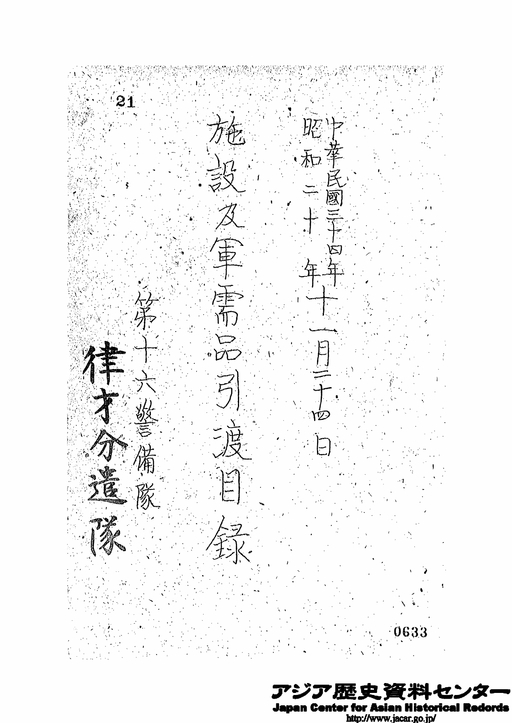 21
中華民國三十四年
昭和二十年
十一月二十四日
施設及軍需品引渡目録
第十六警備隊
律才分遣隊
0633
アジア歴史資料センター
Japan Center for Asian Historical Records
http://www.jacar.go.jp/